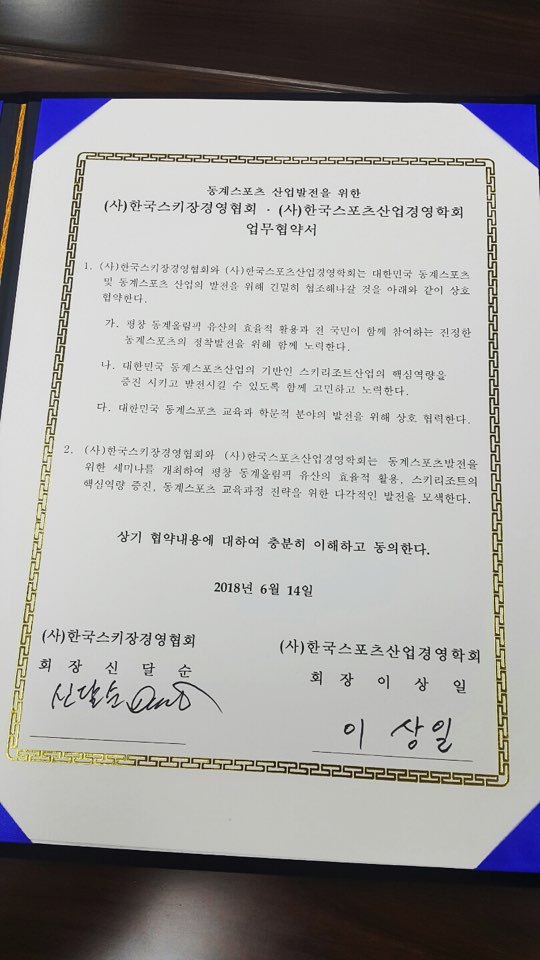 동계스포츠 산업발전을 위한
(사)한국스키장경영협회 · (사)한국스포츠산업경영학회
업무협약서
1. (사)한국스키장경영협회와 (사)한국스포츠산업경영학회는 대한민국 동계스포츠
및 동계스포츠 산업의 발전을 위해 긴밀히 협조해나갈 것을 아래와 같이 상호
협약한다.
가. 평창 동계올림픽 유산의 효율적 활용과 전 국민이 함께 참여하는 진정한
동계스포츠의 정착발전을 위해 함께 노력한다.
나. 대한민국 동계스포츠산업의 기반인 스키리조트산업의 핵심역량을
증진 시키고 발전시킬 수 있도록 함께 고민하고 노력한다.
다. 대한민국 동계스포츠 교육과 학문적 분야의 발전을 위해 상호 협력한다.
2. (사)한국스키장경영협회와 (사)한국스포츠산업경영학회는 동계스포츠발전을
위한 세미나를 개최하여 평창 동계올림픽 유산의 효율적 활용, 스키리조트의
핵심역량 증진, 동계스포츠 교육과정 진략을 위한 다각적인 발전을 모색한다.
상기 협약내용에 대하여 충분히 이해하고 동의한다.
2018년 6월 14일
(사)한국스키장경영협회
회 장 신 달 순
신달순
(사)한국스포츠산업경영학회
회 장 이 상 일
이 상일